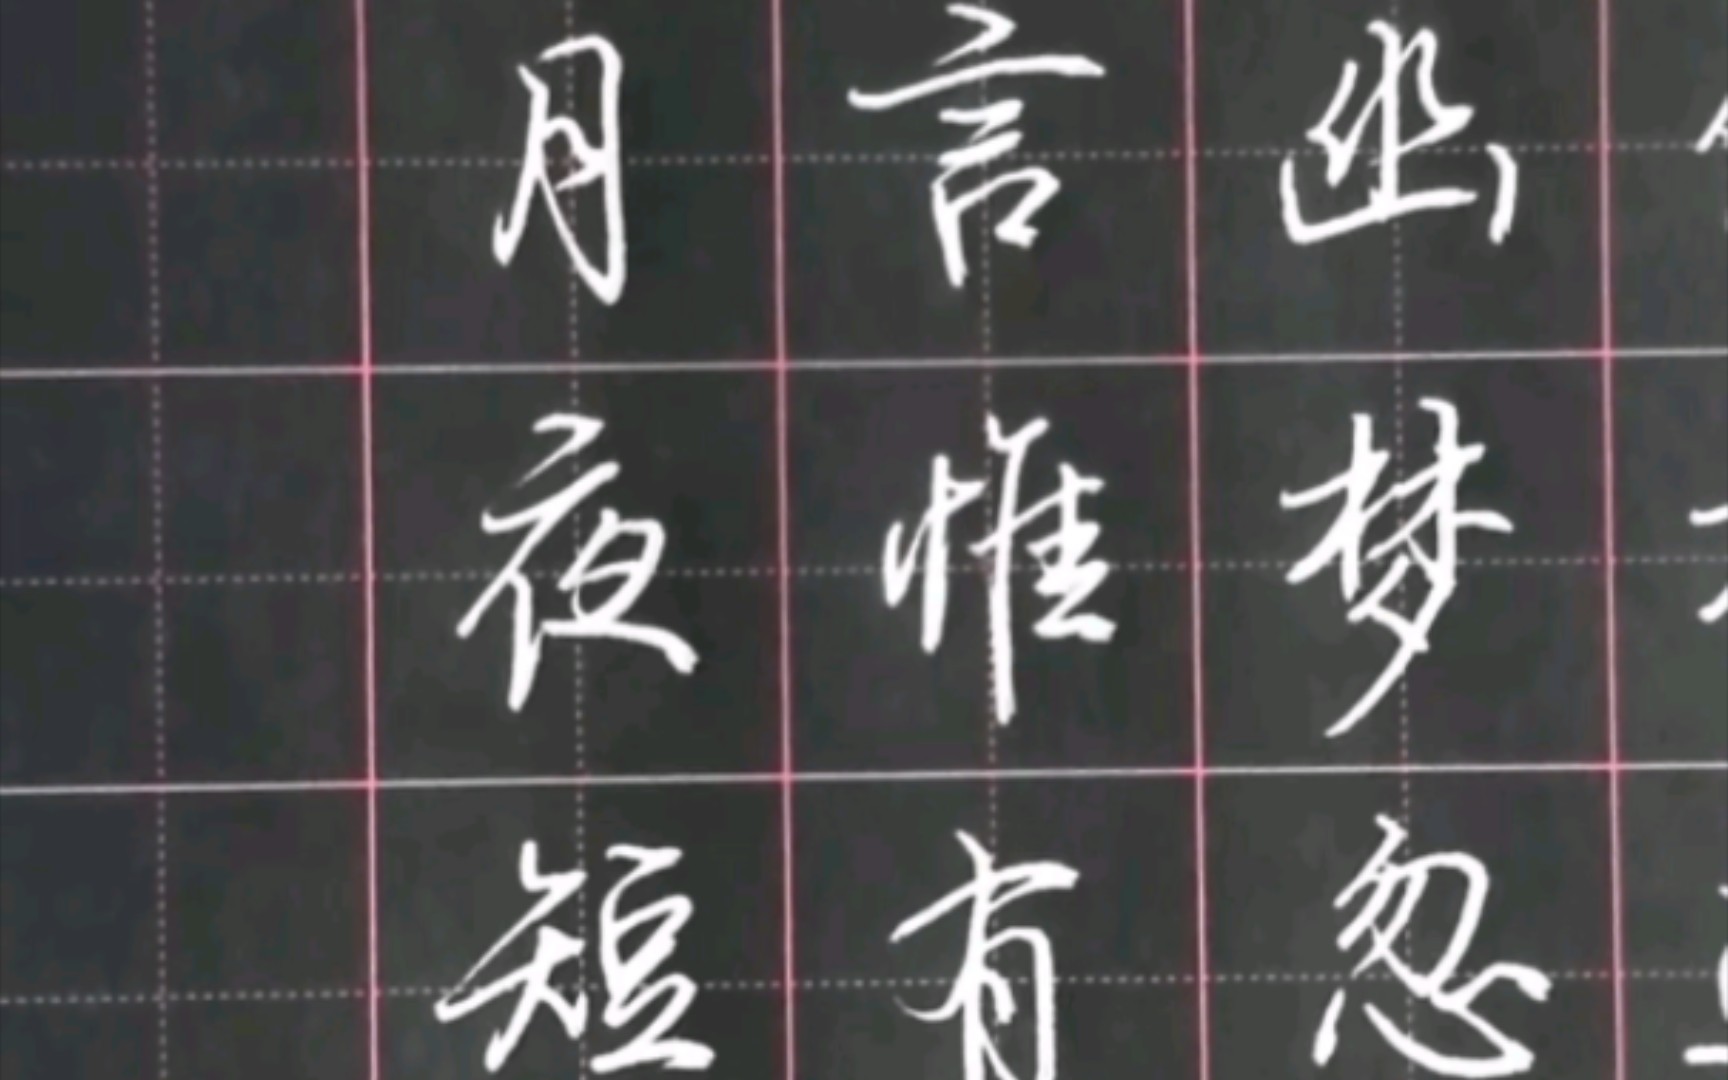 幽梦忽
言惟有
月夜短